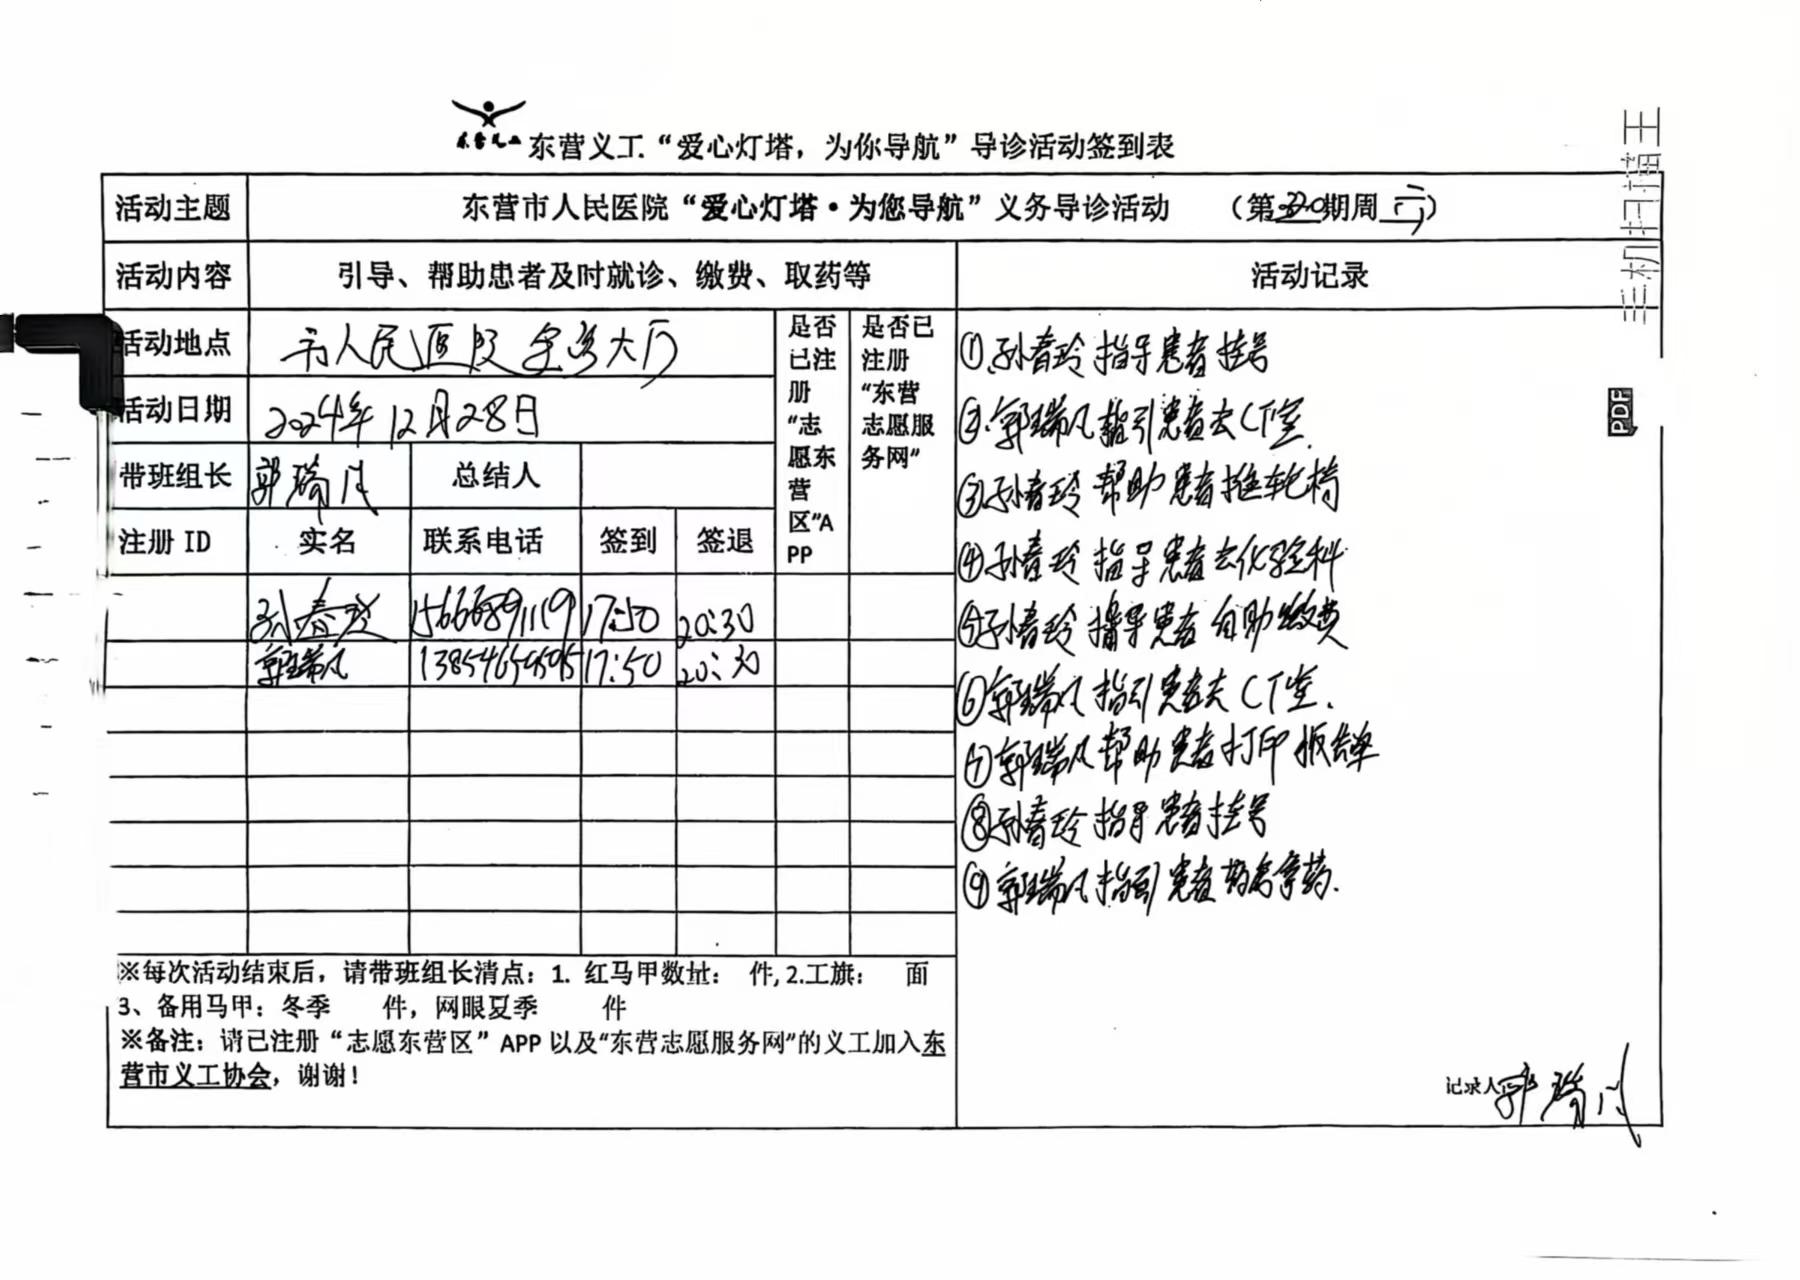 东营义工
东营义工“爱心灯塔，为你导航”导诊活动签到表
活动主题 东营市人民医院“爱心灯塔·为您导航”义务导诊活动 （第 期周六）
活动内容 引导、帮助患者及时就诊、缴费、取药等 活动记录
活动地点 市人民医院 大厅
活动日期 2024年12月28日
带班组长 郭瑞风 总结人
注册 ID 实名 联系电话 签到 签退
是否
已注
册
“志
愿东
营
区”A
PP
是否已
注册
“东营
志愿服
务网”
孙春玲 15666891119 17:50 20:30
郭瑞风 17:50 20:30
①孙春玲指导患者挂号
②郭瑞风指引患者去CT室.
③孙春玲帮助患者推轮椅
④孙春玲指导患者去化验科
⑤孙春玲指导患者自助缴费
⑥郭瑞风指引患者去CT室.
⑦郭瑞风帮助患者打印报告单
⑧孙春玲指导患者挂号
⑨郭瑞风指引患者药房拿药.
※每次活动结束后，请带班组长清点：1. 红马甲数量： 件, 2.工旗： 面
3、备用马甲：冬季 件，网眼夏季 件
※备注：请已注册“志愿东营区”APP 以及“东营志愿服务网”的义工加入东
营市义工协会，谢谢！
记录人 郭瑞风
扫描王
PDF